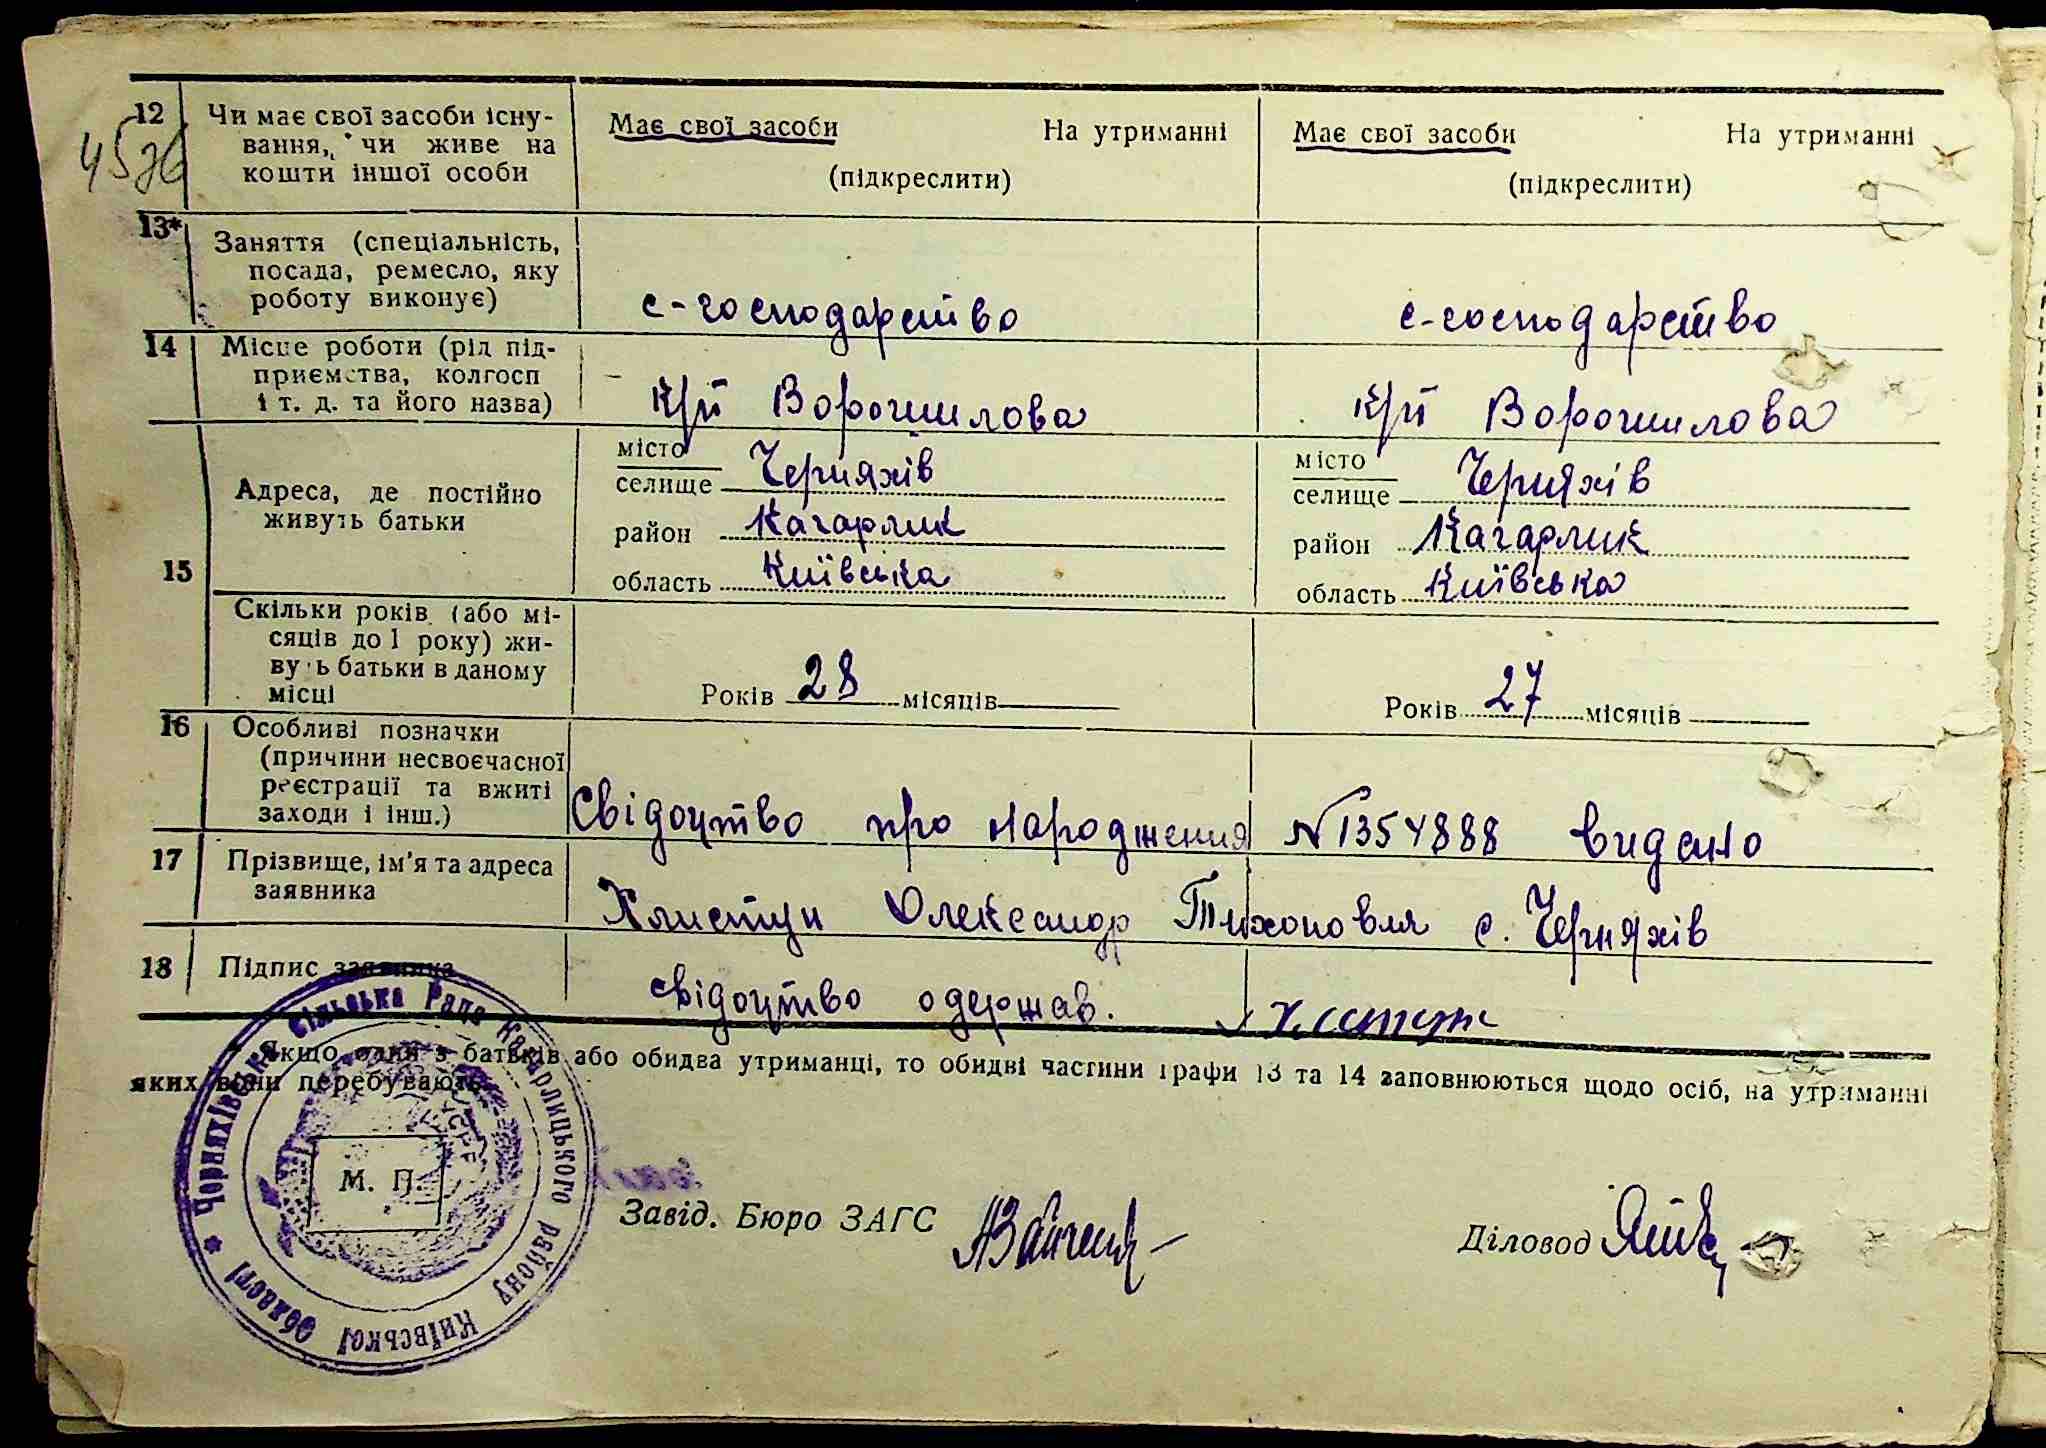 12 Чи має свої засоби існу-
вання, чи живе на
кошти іншої особи
Має свої засоби На утриманні
(підкреслити)
Має свої засоби На утриманні
(підкреслити)
13* Заняття (спеціальність,
посада, ремесло, яку
роботу виконує)
с-господарство
с-господарство
14 Місце роботи (рід під-
приємства, колгосп
і т. д. та його назва)
к/п Ворошилова
к/п Ворошилова
15
Адреса, де постійно
живуть батьки
місто
селище Черняхів
район Кагарлик
область Київська
місто
селище Черняхів
район Кагарлик
область Київська
Скільки років (або мі-
сяців до 1 року) жи-
вуть батьки в даному
місці
Років 28 місяців
Років 27 місяців
16 Особливі позначки
(причини несвоєчасної
реєстрації та вжиті
заходи і інш.)
Свідоцтво про народження №1354888 видано
17 Прізвище, ім'я та адреса
заявника
Хлистун Олександр Тихоновля с. Черняхів
18 Підпис заявника
свідоцтво одержав. Хлистун
* Якщо один з батьків або обидва утриманці, то обидві частини графи 13 та 14 заповнюються щодо осіб, на утриманні
яких вони перебувають.
Черняхівська Сільська Рада Кагарлицького району Київської Області
М. П.
Завід. Бюро ЗАГС
Діловод